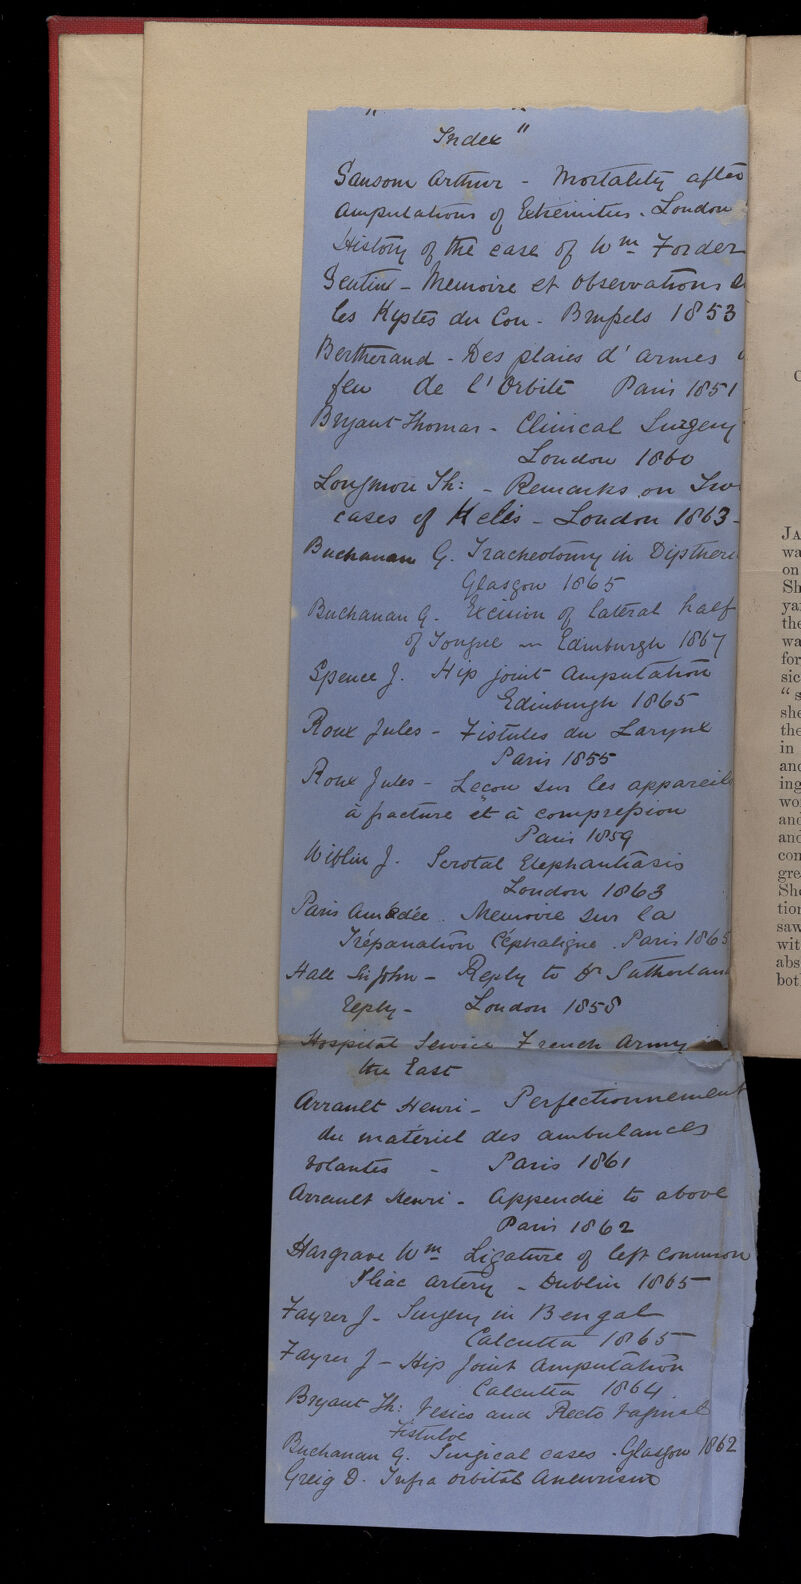 " Index "
Sansom Arthur - Mortality after
Amputations of Extremities. London
History of the case of Wm Forder
Seutin - Memoire et observations
les Kystes du Cou - Brussels 1853
Bertherand - Des plaies d'armes
feu de l'Orbite Paris 1851
Bryant Thomas - Clinical Surgery
London 1860
Longmore Th: - Remarks on Two
cases of Kelis - London 1863-
Buchanan G. Tracheotomy in Dipther
Glasgow 1865
Buchanan G. Excision of lateral half
of Tongue - Edinburgh 1867
Spence J. Hip joint Amputation
Edinburgh 1865
Roux Jules - Fistules du Larynx
Paris 1855
Roux Jules - Leçon sur les appareils
à fracture et à compression
Paris 1859
Wiblin J. Scrotal Elephantiasis
London 1863
Paris Amédée. Memoire sur la
Trépanation Céphalique. Paris 1865
Hall Sir John - Reply to Dr Sutherland
reply - London 1858
Hospital Service French Army in
the East
Arrault Henri - Perfectionnement
du matériel des ambulances
volantes - Paris 1861
Arrault Henri - Appendix to above
Paris 1862
Hargrave Wm Ligature of left common
Iliac Artery - Dublin 1865
Fayrer J - Surgery in Bengal
Calcutta 1865
Fayrer J - Hip Joint Amputation
Calcutta 1864.
Bryant Th: Vesico and Recto Vaginal
Fistulae
Buchanan G. Surgical cases. Glasgow 1862
Greig D. Infra orbital Aneurism
C
JA
wa
on
Sh
yar
the
wa
for
sic
"s
she
the
in
and
ing
wo
and
and
con
gre
She
tion
saw
wit
abs
bot